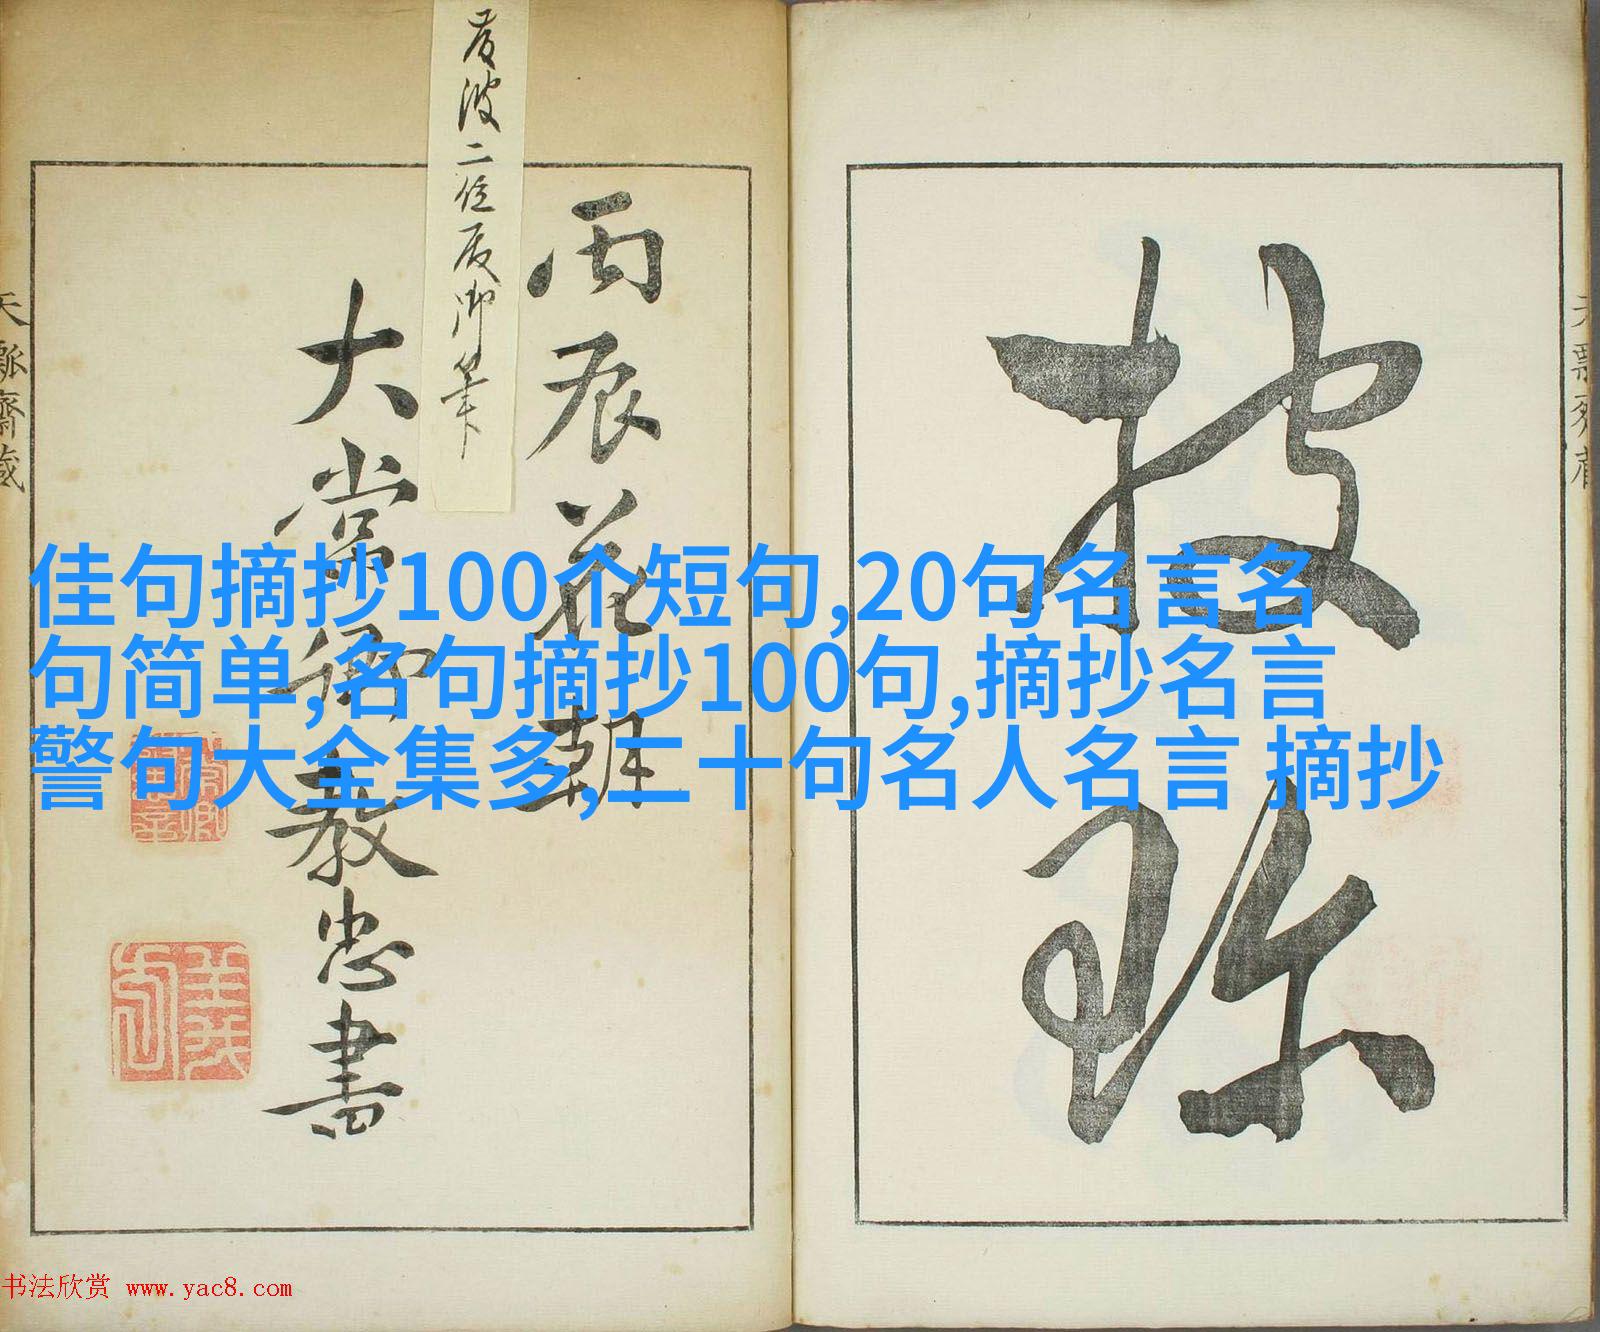 披珎
丙辰花朝
大常卿教忠書
二位
佳句摘抄100个短句,20句名言名
句简单,名句摘抄100句,摘抄名言
警句大全集多,二十句名人名言 摘抄
天瓢齋蔵
书法欣赏 www.yac8.com